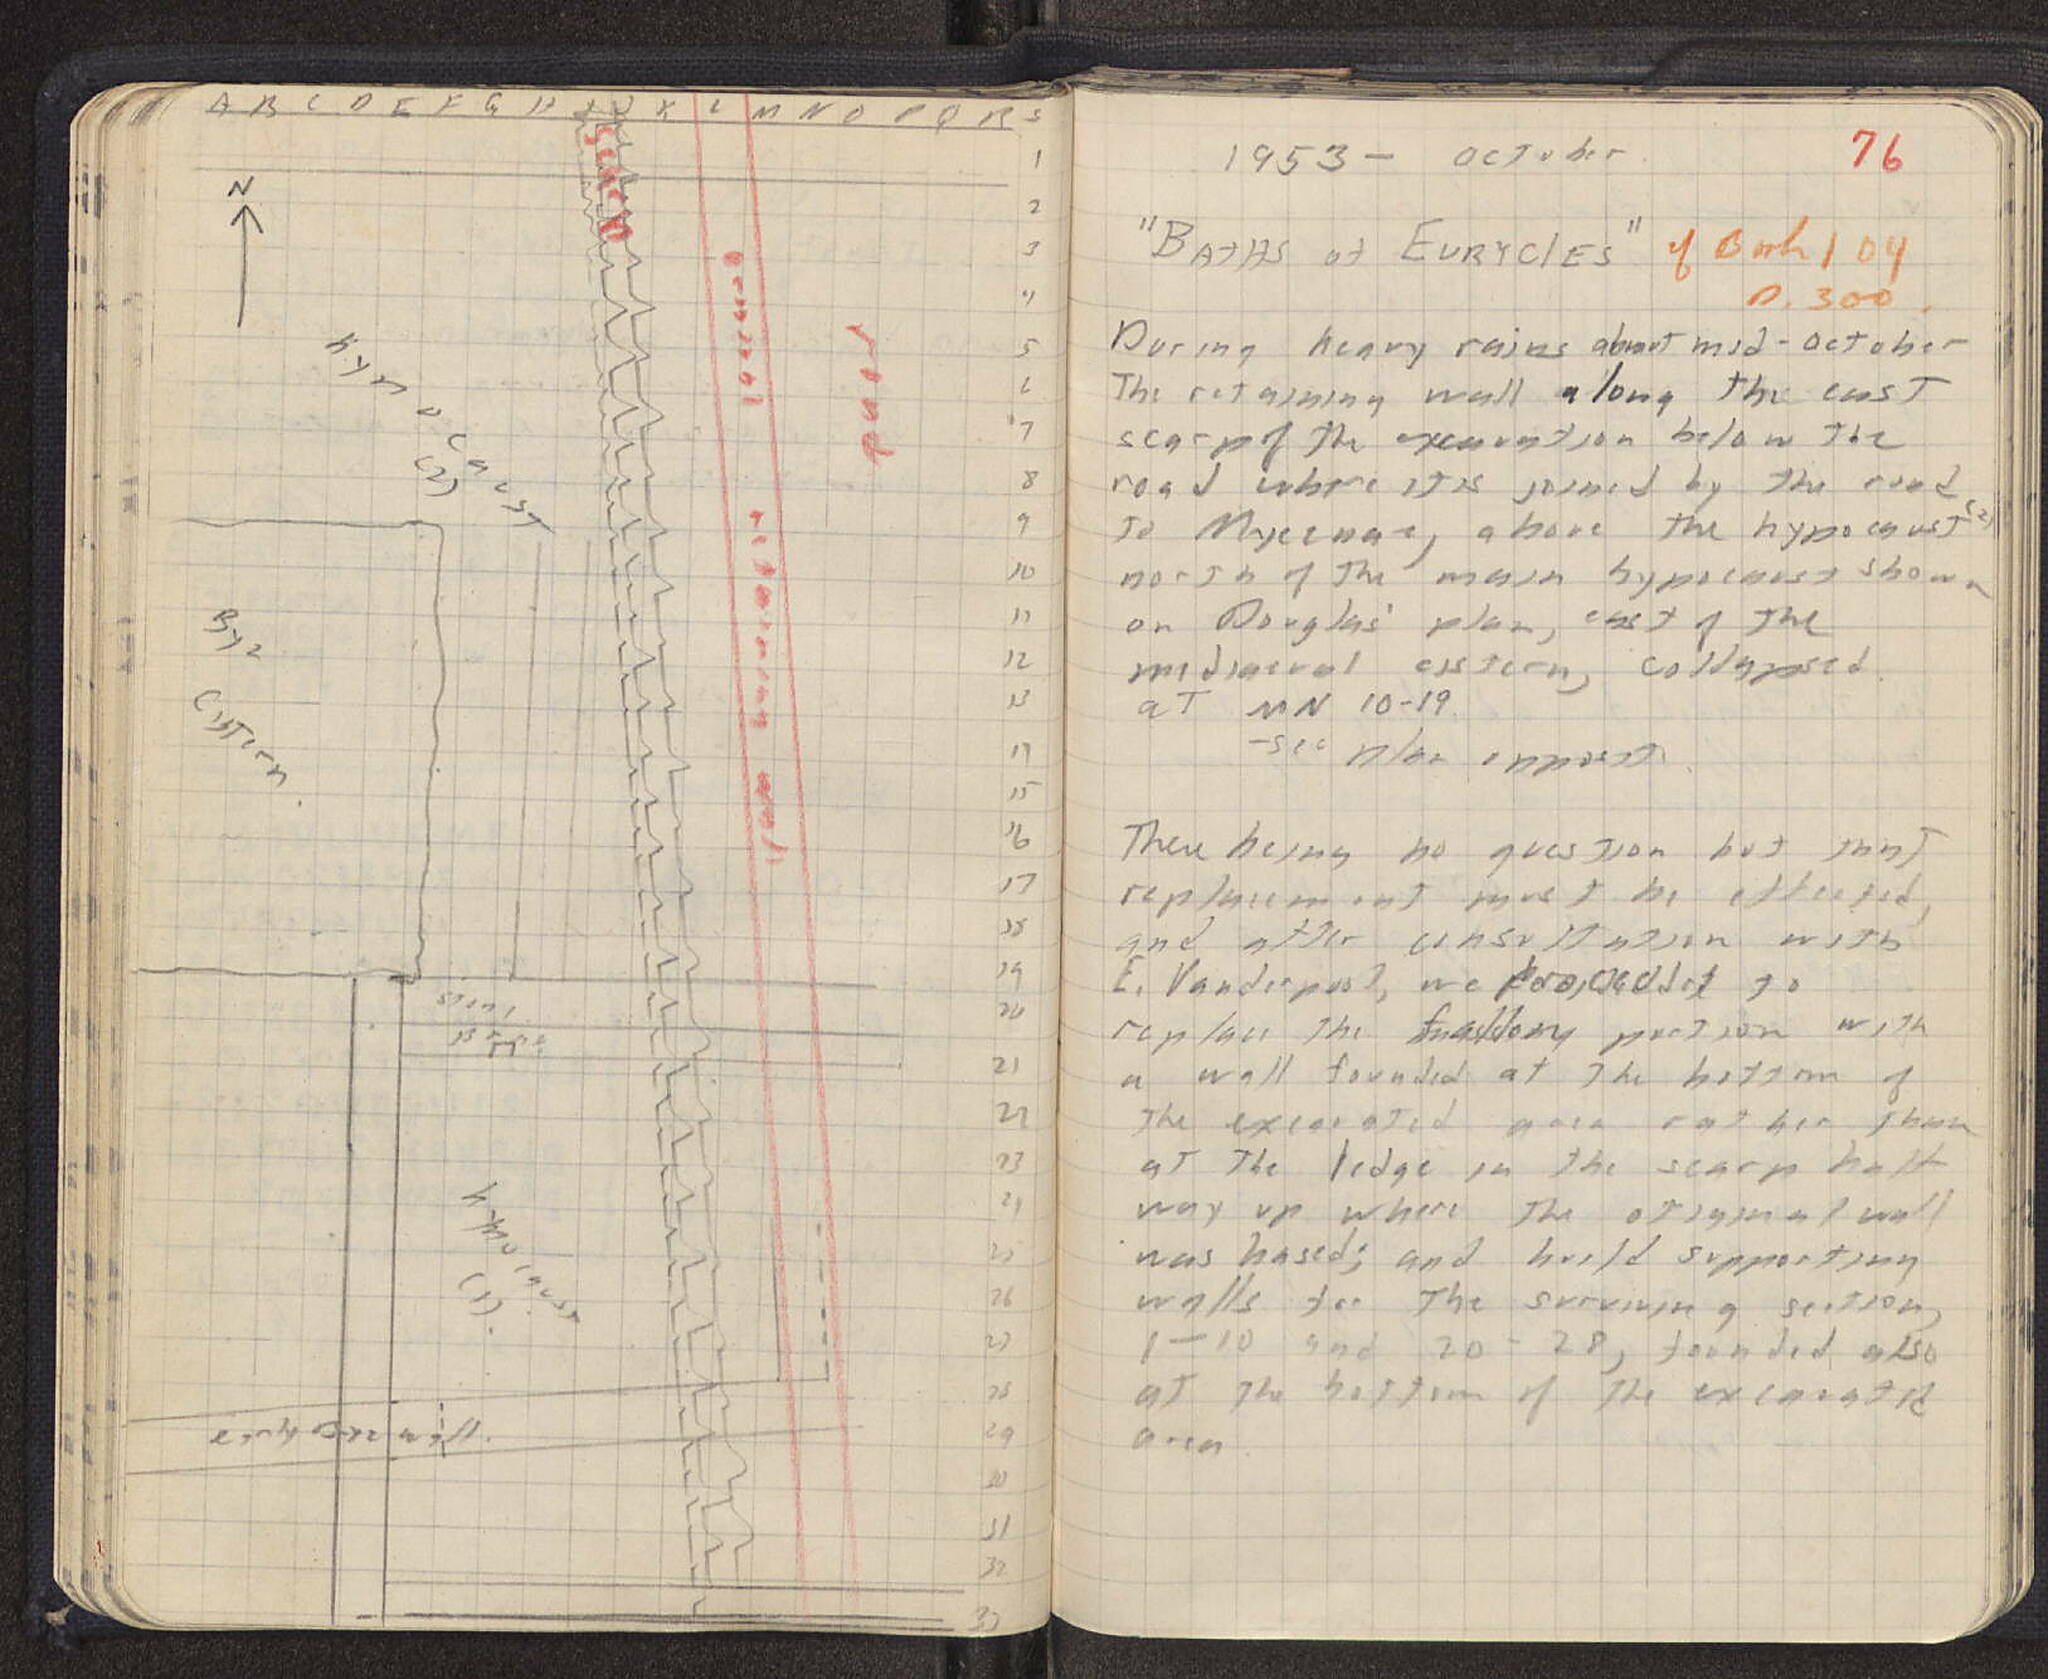 A B C D E F G H I J K L M N O P Q R S
1
2
3
4
5
6
7
8
9
10
11
12
13
14
15
16
17
18
19
20
21
22
23
24
25
26
27
28
29
30
31
32
33
N
scarp
original retaining wall
road
hypocaust
(2)
Byz
Cistern.
hypocaust
(1).
early Byz wall.
1953 — October
76
"BATHS of EURYCLES" cf Book 104
p. 300.
During heavy rains about mid-October
The retaining wall along the east
scarp of the excavation below the
road where it is joined by the road
to Mycenae, above the hypocaust (2)
north of the main hypocaust shown
on Douglas' plan, east of the
mediaeval cistern, collapsed
at MN 10-19.
-see plan opposite.
There being no question but that
replacement must be effected,
and after consultation with
E. Vanderpool, we proceeded to
replace the portion with
a wall founded at the bottom of
the excavated area rather than
at the ledge in the scarp half
way up where the original wall
was based; and build supporting
walls for the surviving section,
1—10 and 20-28, founded also
at the bottom of the excavated
area.